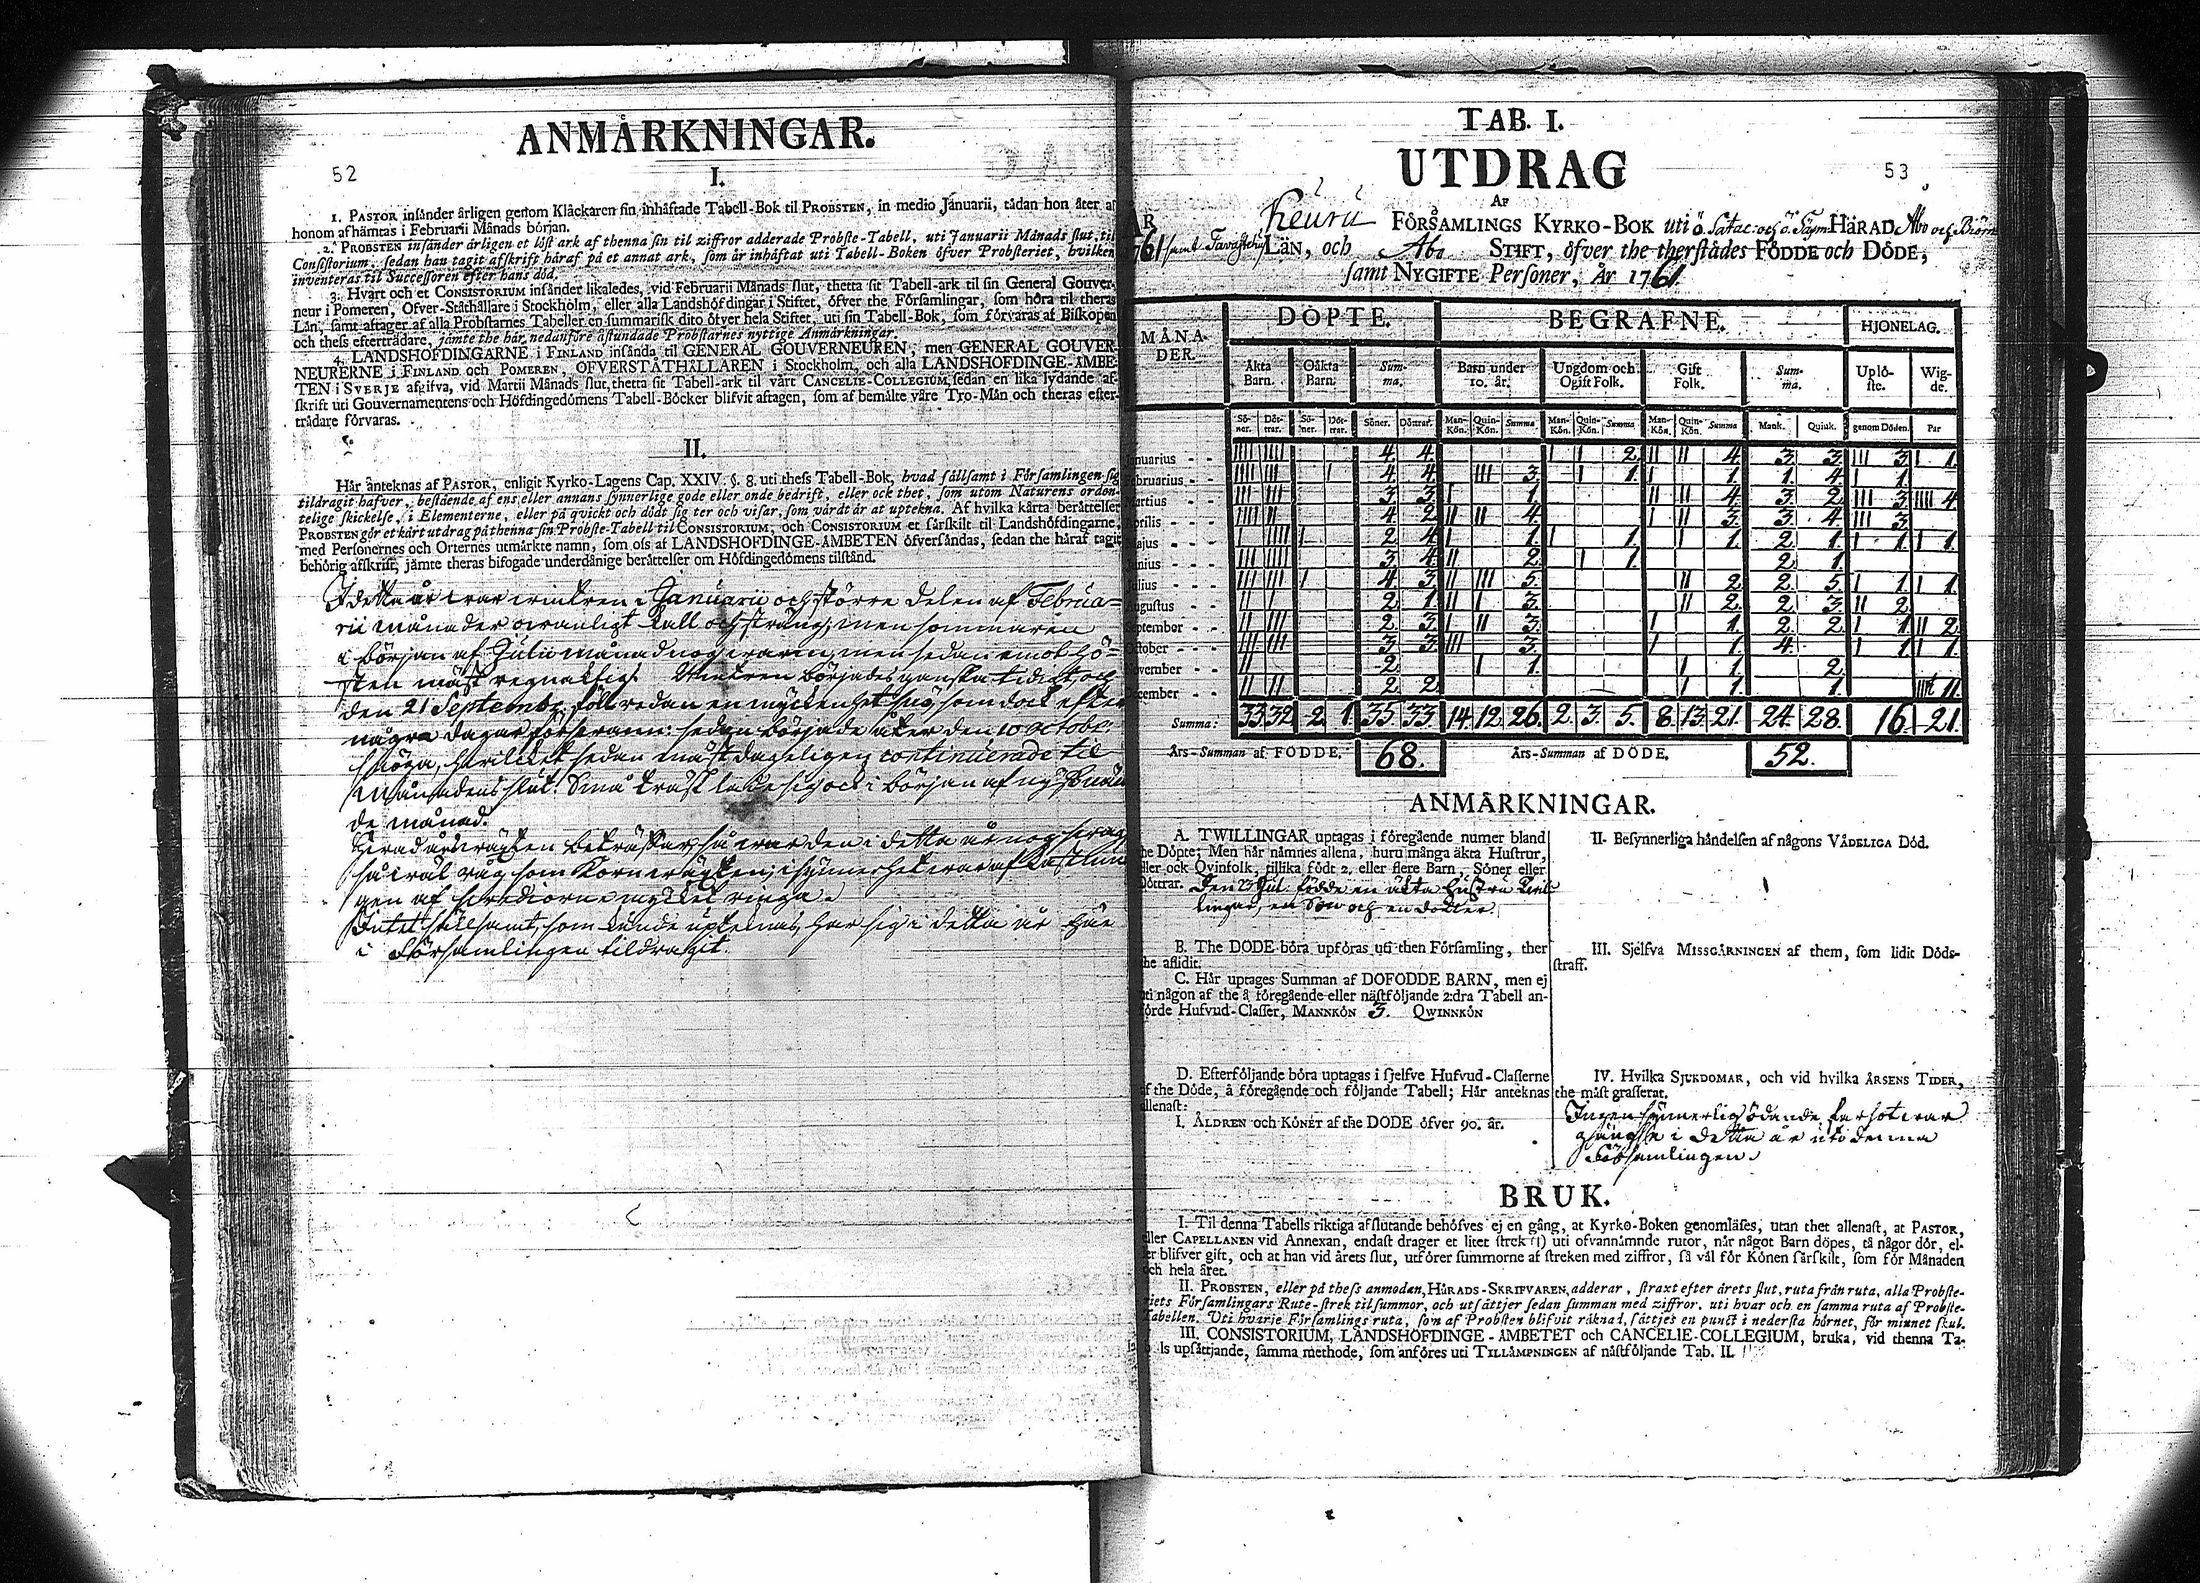 ANMÅRKNINGAR.
52
I.
1. PASTOR insånder årligen genom Klåckaren sin inhåftade Tabell-Bok til PROBSTEN, in medio Januarii, tådan hon åter af
honom afhåmtas i Februarii Månads början.
2. PROBSTEN insånder årligen et löst ark af thenna sin til ziffror adderade Probste-Tabell, uti Januarii Månads slut, til
Consistorium, sedan han tagit afskrift håraf på et annat ark, som år inhåftat uti Tabell-Boken öfver Probsteriet, hvilken
inventeras til Successoren efter hans död.
3. Hvart och et CONSISTORIUM insånder likaledes, vid Februarii Månads slut, thetta sit Tabell-ark til sin General Gouver-
neur i Pomeren, Ofver-Ståthållare i Stockholm, eller alla Landshöfdingar i Stiftet, öfver the Församlingar, som höra til theras
Lån, samt aftager af alla Probstarnes Tabeller en summarisk dito öfver hela Stiftet, uti sin Tabell-Bok, som förvaras af Biskopen
och thess eftertrådare, jåmte the hår nedanföre åstundade Probstarnes nyttige Anmårkningar.
4. LANDSHOFDINGARNE i FINLAND insånda til GENERAL GOUVERNEUREN, men GENERAL GOUVER-
NEURERNE i FINLAND och POMEREN, OFVERSTÅTHÅLLAREN i Stockholm, och alla LANDSHOFDINGE-ÅMBE-
TEN i SVERJE afgifva, vid Martii Månads slut, thetta sit Tabell-ark til vårt CANCELIE-COLLEGIUM, sedan en lika lydande af-
skrift uti Gouvernamentens och Höfdingedömens Tabell-Böcker blifvit aftagen, som af bemålte våre Tro-Mån och theras efter-
trådare förvaras.
II.
Hår ånteknas af PASTOR, enligit Kyrko-Lagens Cap. XXIV. §. 8. uti thess Tabell-Bok, hvad sållsamt i Församlingen sig
tildragit hafver, bestående af ens eller annans synnerlige gode eller onde bedrift, eller ock thet, som utom Naturens orden-
telige skickelse, i Elementerne, eller på qvickt och dödt sig ter och visar, som vårdt år at uptekna. Af hvilka kårta beråttelser
PROBSTEN gör et kårt utdrag på thenna sin Probste-Tabell til CONSISTORIUM, och CONSISTORIUM et sårskilt til Landshöfdingarne,
med Personernes och Orternes utmårkte namn, som oss af LANDSHOFDINGE-ÅMBETEN öfversåndas, sedan the håraf tagit
behörig afskrift, jåmte theras bifogade underdånige beråttelser om Höfdingedömens tilstånd.
I detta år war wintren i Januarii och större delen af Februa-
rii månader owanligt kall och sträng, men sommaren
i början af Julii månad nog warm, men sedan emot hö-
sten mäst regnaktig. Wintren börjades ganska tidigt, och
den 21 Septembr. föll redan en myckenhet snö, som dock efter
några dagar försvann: sedan började åter den 10 octobr.
snöga, hwilcket sedan mäst dageligen continuerade til
Månadens slut. Små träsk lade sig ock i början af
de månad.
wäxten beträffar, så war den i detta år nog
så wäl råg som Kornwäxten, i synnerhet war
gen af mycket ringa.
Intet sällsamt, som kunde upteknas, har sig i detta år här
i Församlingen tildragit.
TAB. I.
UTDRAG
53
AF
Keuru FÖRSAMLINGS KYRKO-BOK uti ö. Satac. och ö. HÄRAD Åbo och Biörn
samt Tavasteh. LÅN, och Åbo STIFT, öfver the therstådes FÖDDE och DÖDE,
samt NYGIFTE Personer, År 1761.
MÅNA- DÖPTE. BEGRAFNE. HJONELAG.
DER.
Åkta Barn. Oåkta Barn. Sum-ma. Barn under 10. år. Ungdom och Ogift Folk. Gift Folk. Sum-ma. Uplö-ste. Wig-de.
Sö-ner. Döt-trar. Sö-ner. Döt-trar. Söner. Döttrar. Man-Kön. Quin-Kön. Summa Man-Kön. Quin-Kön. Summa Man-Kön. Quin-Kön. Summa Mank. Quink. genom Döden. Par
Januarius - - IIII IIII 4. 4. I I 2. II II 4. 3. 3. III 3. I 1.
Februarius - - IIII III I 4. 4. III 3. I 1. I 1. 1. 4. I 1.
Martius - - III III 3. 3. I 1. II II 4. 3. 2. III 3. IIII 4.
Aprilis - - IIII II 4. 2. II II 4. I II 3. 3. 4. III 3.
Majus - - I IIII I 2. 4. I 1. I 1. I 1. 2. 1. I 1. I 1.
Junius - - III IIII 3. 4. II 2. I 1. 2. 1.
Julius - - III III I 4. 3. II III 5. II 2. 2. 5. I 1. I 1.
Augustus - - II I 2. 1. II I 3. II 2. 2. 3. II 2.
September - - II III 2. 3. I II 3. I 1. 2. 2. I 1. II 2.
October - - III III 3. 3. III 3. I 1. 4. I 1. I 1.
November - - II 2. I 1. I 1. 2.
December - - II II 2. 2. I 1. 1. 11.
Summa: 33. 32. 2. 1. 35. 33. 14. 12. 26. 2. 3. 5. 8. 13. 21. 24. 28. 16. 21.
Års-Summan af FÖDDE. 68. Års-Summan af DÖDE. 52.
ANMÅRKNINGAR.
A. TWILLINGAR uptagas i föregående numer bland
the Döpte; Men hår nåmnes allena, huru många åkta Hustrur,
eller ock Qvinfolk, tillika födt 2. eller flere Barn, Söner eller
Döttrar. Den 23 Jul. födde en äkta Hustru twil-
lingar, en Son och en dotter.
B. The DÖDE böra upföras uti then Församling, ther
the aflidit.
C. Hår uptages Summan af DÖFÖDDE BARN, men ej
uti någon af the å föregående eller nåstföljande 2:dra Tabell an-
förde Hufvud-Classer, MANNKÖN 3. QWINNKÖN
D. Efterföljande böra uptagas i sjelfve Hufvud-Classerne
af the Döde, å föregående och följande Tabell; Hår anteknas
allenast:
I. ÅLDREN och KÖNET af the DÖDE öfver 90. år.
II. Besynnerliga håndelsen af någons VÅDELIGA Död.
III. Sjelfva MISSGÅRNINGEN af them, som lidit Döds-
straff.
IV. Hvilka SJUKDOMAR, och vid hvilka ÅRSENS TIDER,
the måst grasserat.
Ingen synnerlig ödande farsot war
gängse i detta år uti denna
Församlingen.
BRUK.
I. Til denna Tabells riktiga afslutande behöfves ej en gång, at Kyrko-Boken genomlåses, utan thet allenast, at PASTOR,
eller CAPELLANEN vid Annexan, endast drager et litet strek (I) uti ofvannåmnde rutor, når något Barn döpes, tå någor dör, el-
ler blifver gift, och at han vid årets slut, utförer summorne af streken med ziffror, så vål för Könen sårskilt, som för Månaden
och hela året.
II. PROBSTEN, eller på thess anmodan, HÅRADS-SKRIFVAREN, adderar, straxt efter årets slut, ruta från ruta, alla Probste-
riets Församlingars Rute-strek til summor, och utsåttjer sedan summan med ziffror, uti hvar och en samma ruta af Probste-
Tabellen. Uti hvarje Församlings ruta, som af Probsten blifvit råknad, såttjes en punct i nedersta hörnet, för minnet skul.
III. CONSISTORIUM, LANDSHÖFDINGE-ÅMBETET och CANCELIE-COLLEGIUM, bruka, vid thenna Ta-
bells upsåttjande, samma methode, som anföres uti TILLÅMPNINGEN af nåstföljande Tab. II.